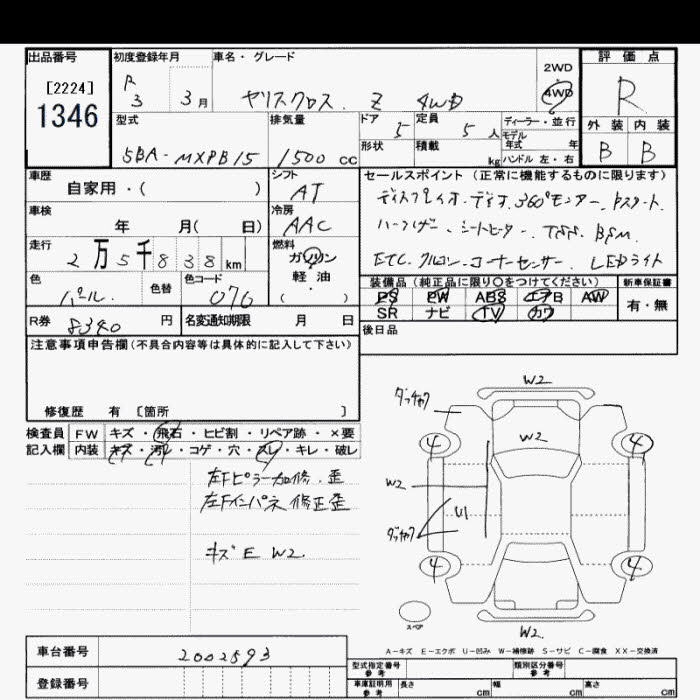 出品番号
[2224]
1346
初度登録年月
R 3 3月
車名・グレード
ヤリスクロス. Z 4WD
2WD
4WD
評価点
R
外装 内装
B B
型式
5BA-MXPB15
排気量
1500 cc
ドア 5
定員 5人
ディーラー・並行
モデル
年式 年
形状
積載 kg
ハンドル 左・右
車歴
自家用・( )
シフト
AT
セールスポイント (正常に機能するものに限ります)
ディスプレイオーディオ.360°モニター.Pスタート.
ハーフレザー.シートヒーター.TSS.BSM.
ETC.クルコン.コーナーセンサー.LEDライト
車検
年 月( 日)
冷房
AAC
走行
2万5千838km
燃料
ガソリン
軽油
( )
色
パール.
色替
色コード
070
装備品 (純正品に限り○をつけてください)
新車保証書
PS PW ABS エアB AW
SR ナビ TV カワ
有・無
R券 8340 円
名変通知期限 月 日
後日品
注意事項申告欄(不具合内容等は具体的に記入して下さい)
修復歴 有 〔箇所 〕
検査員
記入欄
FW キズ・飛石・ヒビ割・リペア跡・×要
内装 キズ・汚レ・コゲ・穴・スレ・キレ・破レ
左Fピラー加修.歪
左Fインパネ修正歪
キズE W2.
W2
ダッチャク
4
4
W2
W2
U1
ダッチャク
4
4
スペア
W2.
A-キズ E-エクボ U-凹み W-補修跡 S-サビ C-腐食 XX-交換済
車台番号
2002593
登録番号
型式指定番号
参考
類別区分番号
参考
車庫証明用
参考
長さ cm 幅 cm 高さ cm